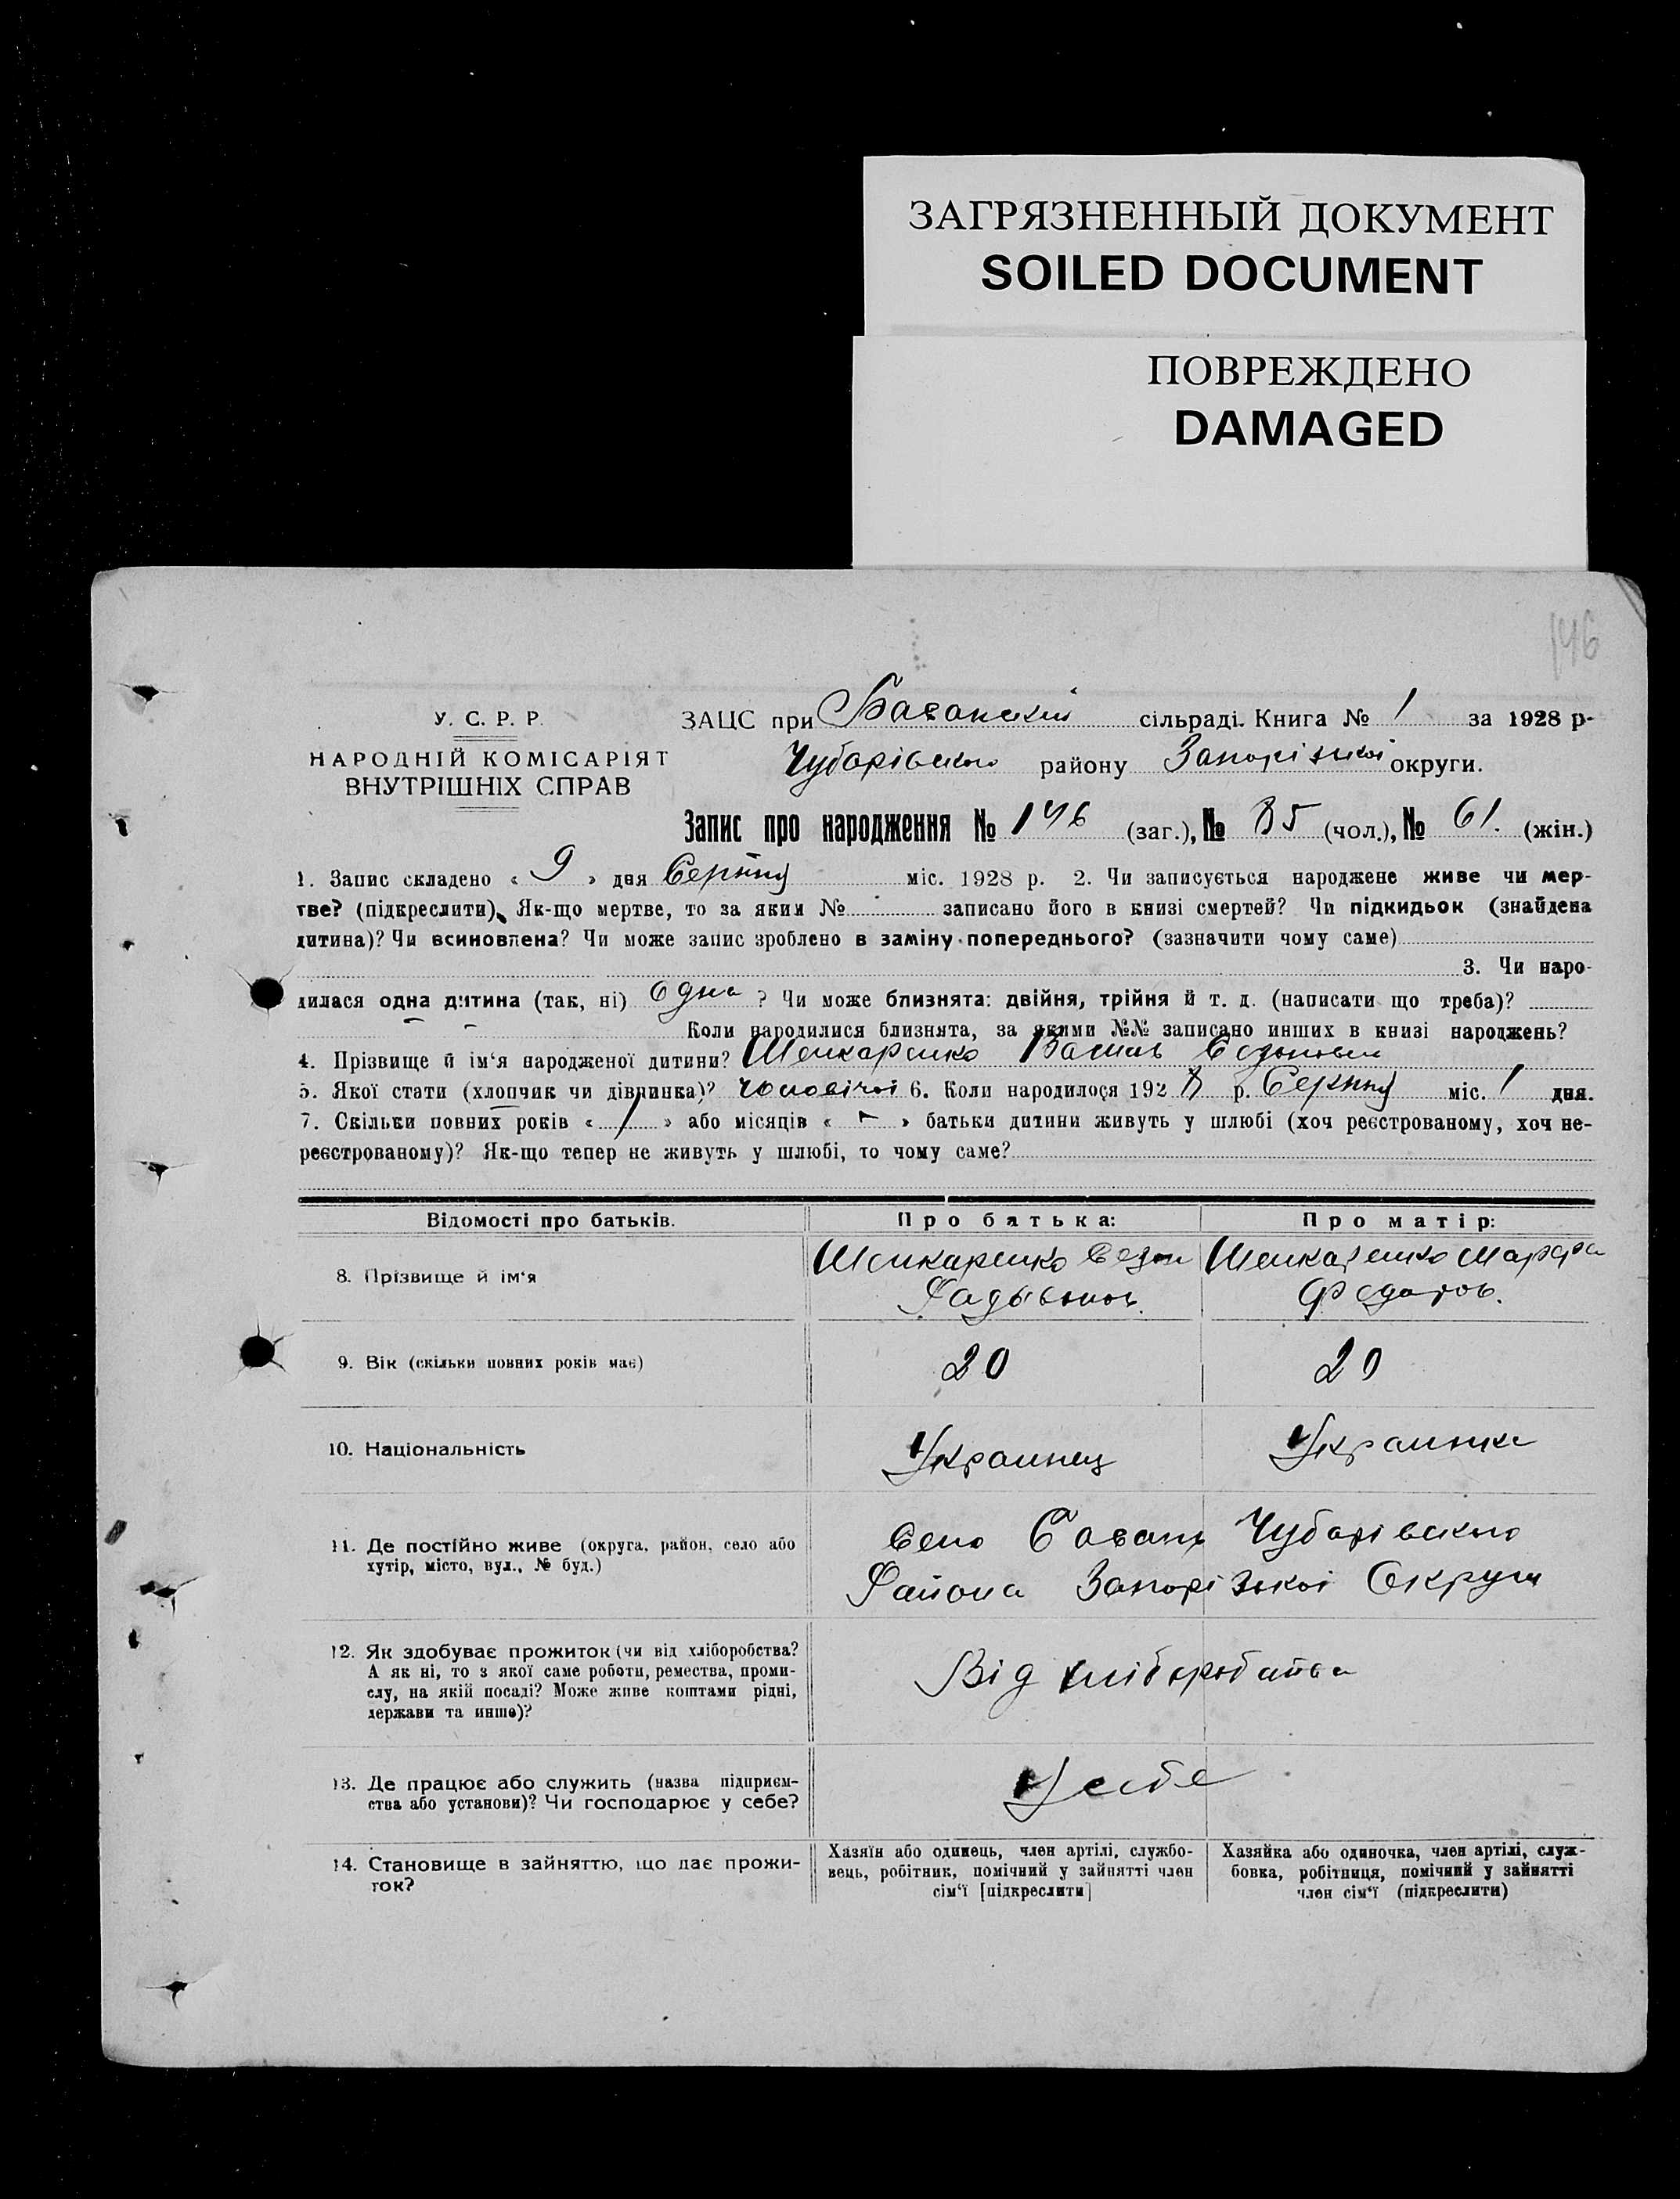 ЗАГРЯЗНЕННЫЙ ДОКУМЕНТ
SOILED DOCUMENT
ПОВРЕЖДЕНО
DAMAGED
146
У. С. Р. Р.
НАРОДНІЙ КОМІСАРІЯТ
ВНУТРІШНІХ СПРАВ
ЗАЦС при сільраді. Книга № 1 за 1928 р-
Чубарівського району Запорізької округи.
Запис про народження № 146 (заг.), № 85 (чол.), № 61. (жін.)
1. Запис складено « 9 » дня Серпня міс. 1928 р. 2. Чи записується народжене живе чи мер-
тве? (підкреслити), Як-що мертве, то за яким № записано його в книзі смертей? Чи підкидьок (знайдена
дитина)? Чи всиновлена? Чи може запис зроблено в заміну попереднього? (зазначити чому саме)
3. Чи наро-
дилася одна дитина (так, ні) Одна ? Чи може близнята: двійня, трійня й т. д. (написати що треба)?
Коли народилися близнята, за якими №№ записано инших в книзі народжень?
4. Прізвище й ім‘я народженої дитини? Шенкаренко Василь
5. Якої стати (хлопчик чи дівчинка)? чоловічої 6. Коли народилося 1928 р. Серпня міс. 1 дня.
7. Скільки повних років « 1 » або місяців « - » батьки дитини живуть у шлюбі (хоч реєстрованому, хоч не-
реєстрованому)? Як-що тепер не живуть у шлюбі, то чому саме?
Відомості про батьків. Про батька: Про матір:
8. Прізвище й ім‘я Шенкаренко Шенкаренко
Федотов.
9. Вік (скільки повних років має) 20 20
10. Національність Украинец Украинка
11. Де постійно живе (округа, район, село або
хутір, місто, вул., № буд.)
Село Чубарівського
Района Запорізької Округи
12. Як здобуває прожиток (чи від хліборобства?
А як ні, то з якої саме роботи, ремества, проми-
слу, на якій посаді? Може живе коштами рідні,
держави та инше)?
Від хліборобства
13. Де працює або служить (назва підприєм-
ства або установи)? Чи господарює у себе?
У себе
14. Становище в зайняттю, що дає прожи-
ток?
Хазяїн або одинець, член артілі, службо-
вець, робітник, помічний у зайнятті член
сім‘ї [підкреслити]
Хазяйка або одиночка, член артілі, служ-
бовка, робітниця, помічний у зайнятті
член сім‘ї (підкреслити)